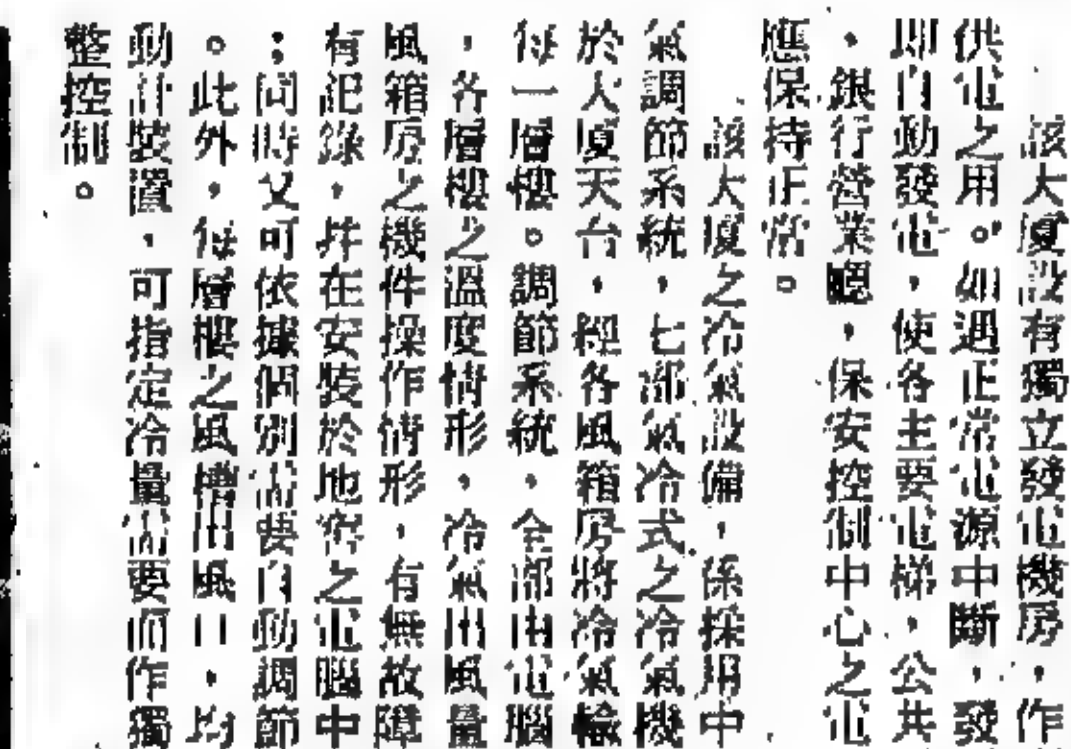 該大廈設有獨立發電機房，作
供電之用。如遇正常電源中斷，發
即自動發電，使各主要電梯，公共
，銀行營業廳，保安控制中心之電
應保持正常。
該大廈之冷氣設備，係採用中
氣調節系統，七部氣冷式之冷氣機
於大廈天台，經各風箱房將冷氣輸
每一層樓。調節系統，全部由電腦
，各層樓之溫度情形，冷氣出風量
風箱房之機件操作情形，有無故障
有記錄，并在安裝於地窖之電腦中
；同時又可依據個別需要自動調節
。此外，每層樓之風槽出風口，均
動計裝置，可指定冷量需要而作獨
整控制。